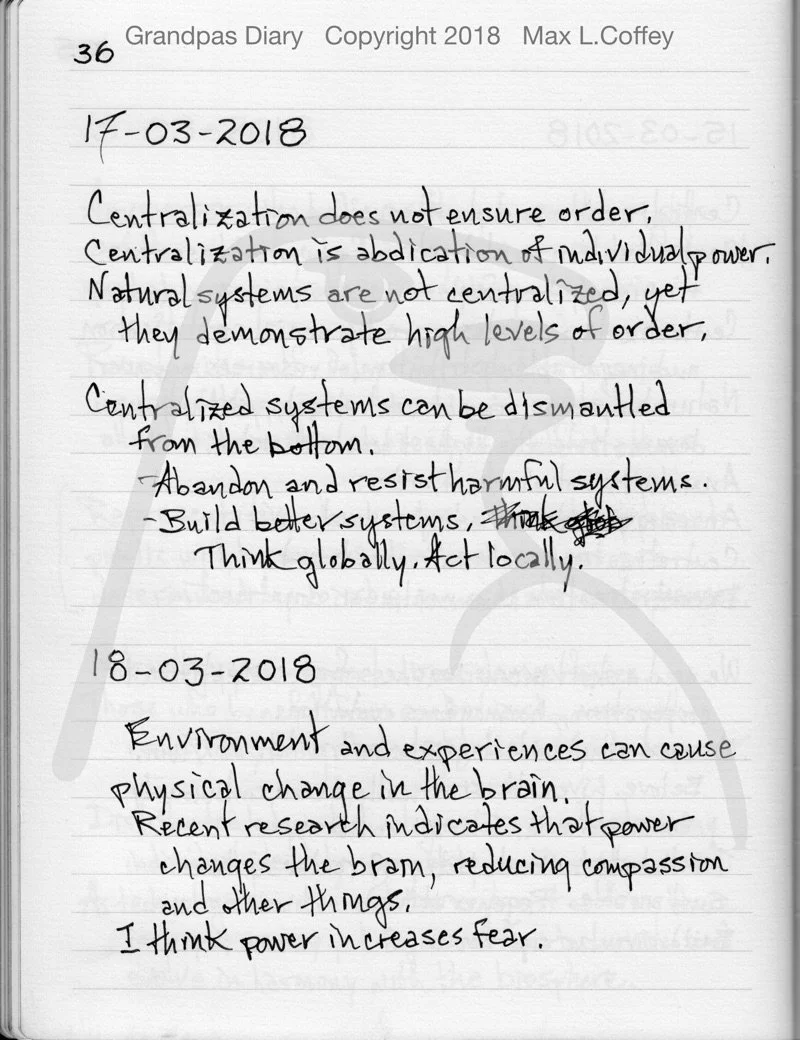 Grandpas Diary Copyright 2018 Max L.Coffey
36
17-03-2018
Centralization does not ensure order.
Centralization is abdication of individual power.
Natural systems are not centralized, yet
they demonstrate high levels of order.
Centralized systems can be dismantled
from the bottom.
-Abandon and resist harmful systems.
-Build better systems. Think
Think globally. Act locally.
18-03-2018
Environment and experiences can cause
physical change in the brain.
Recent research indicates that power
changes the brain, reducing compassion
and other things.
I think power increases fear.